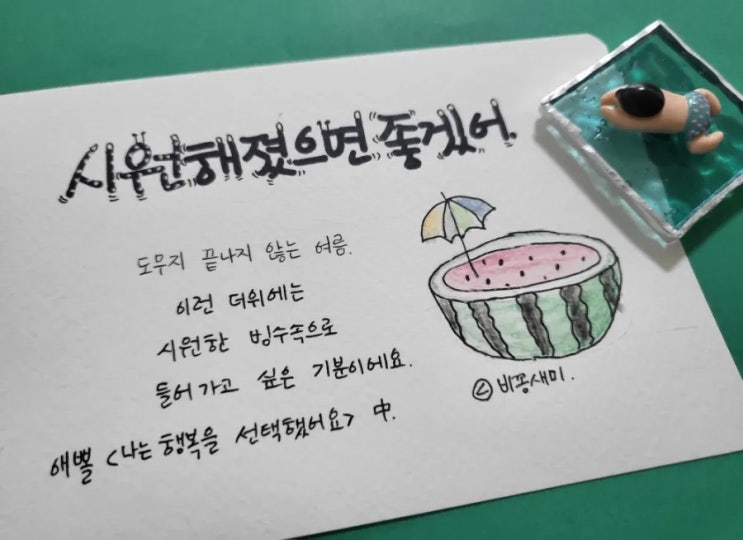 시원해졌으면 좋겠어.
도무지 끝나지 않는 여름.
이런 더위에는
시원한 빙수속으로
들어가고 싶은 기분이에요.
애뽈 <나는 행복을 선택했어요> 中.
비꽁새미.